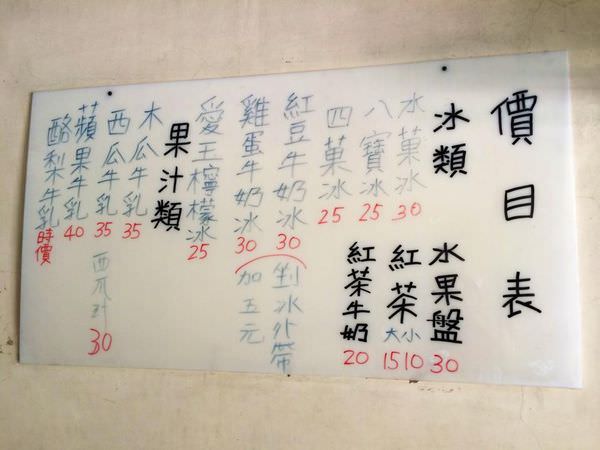 價目表
冰類
水菓冰 30
八寶冰 25
四菓冰 25
紅豆牛奶冰 30
雞蛋牛奶冰 30
愛王檸檬冰 25
果汁類
木瓜牛乳 35
西瓜牛乳 35
蘋果牛乳 40
酪梨牛乳 時價
水果盤 30
紅茶 大15 小10
紅茶牛奶 20
剉冰外帶
加五元
西瓜汁 30